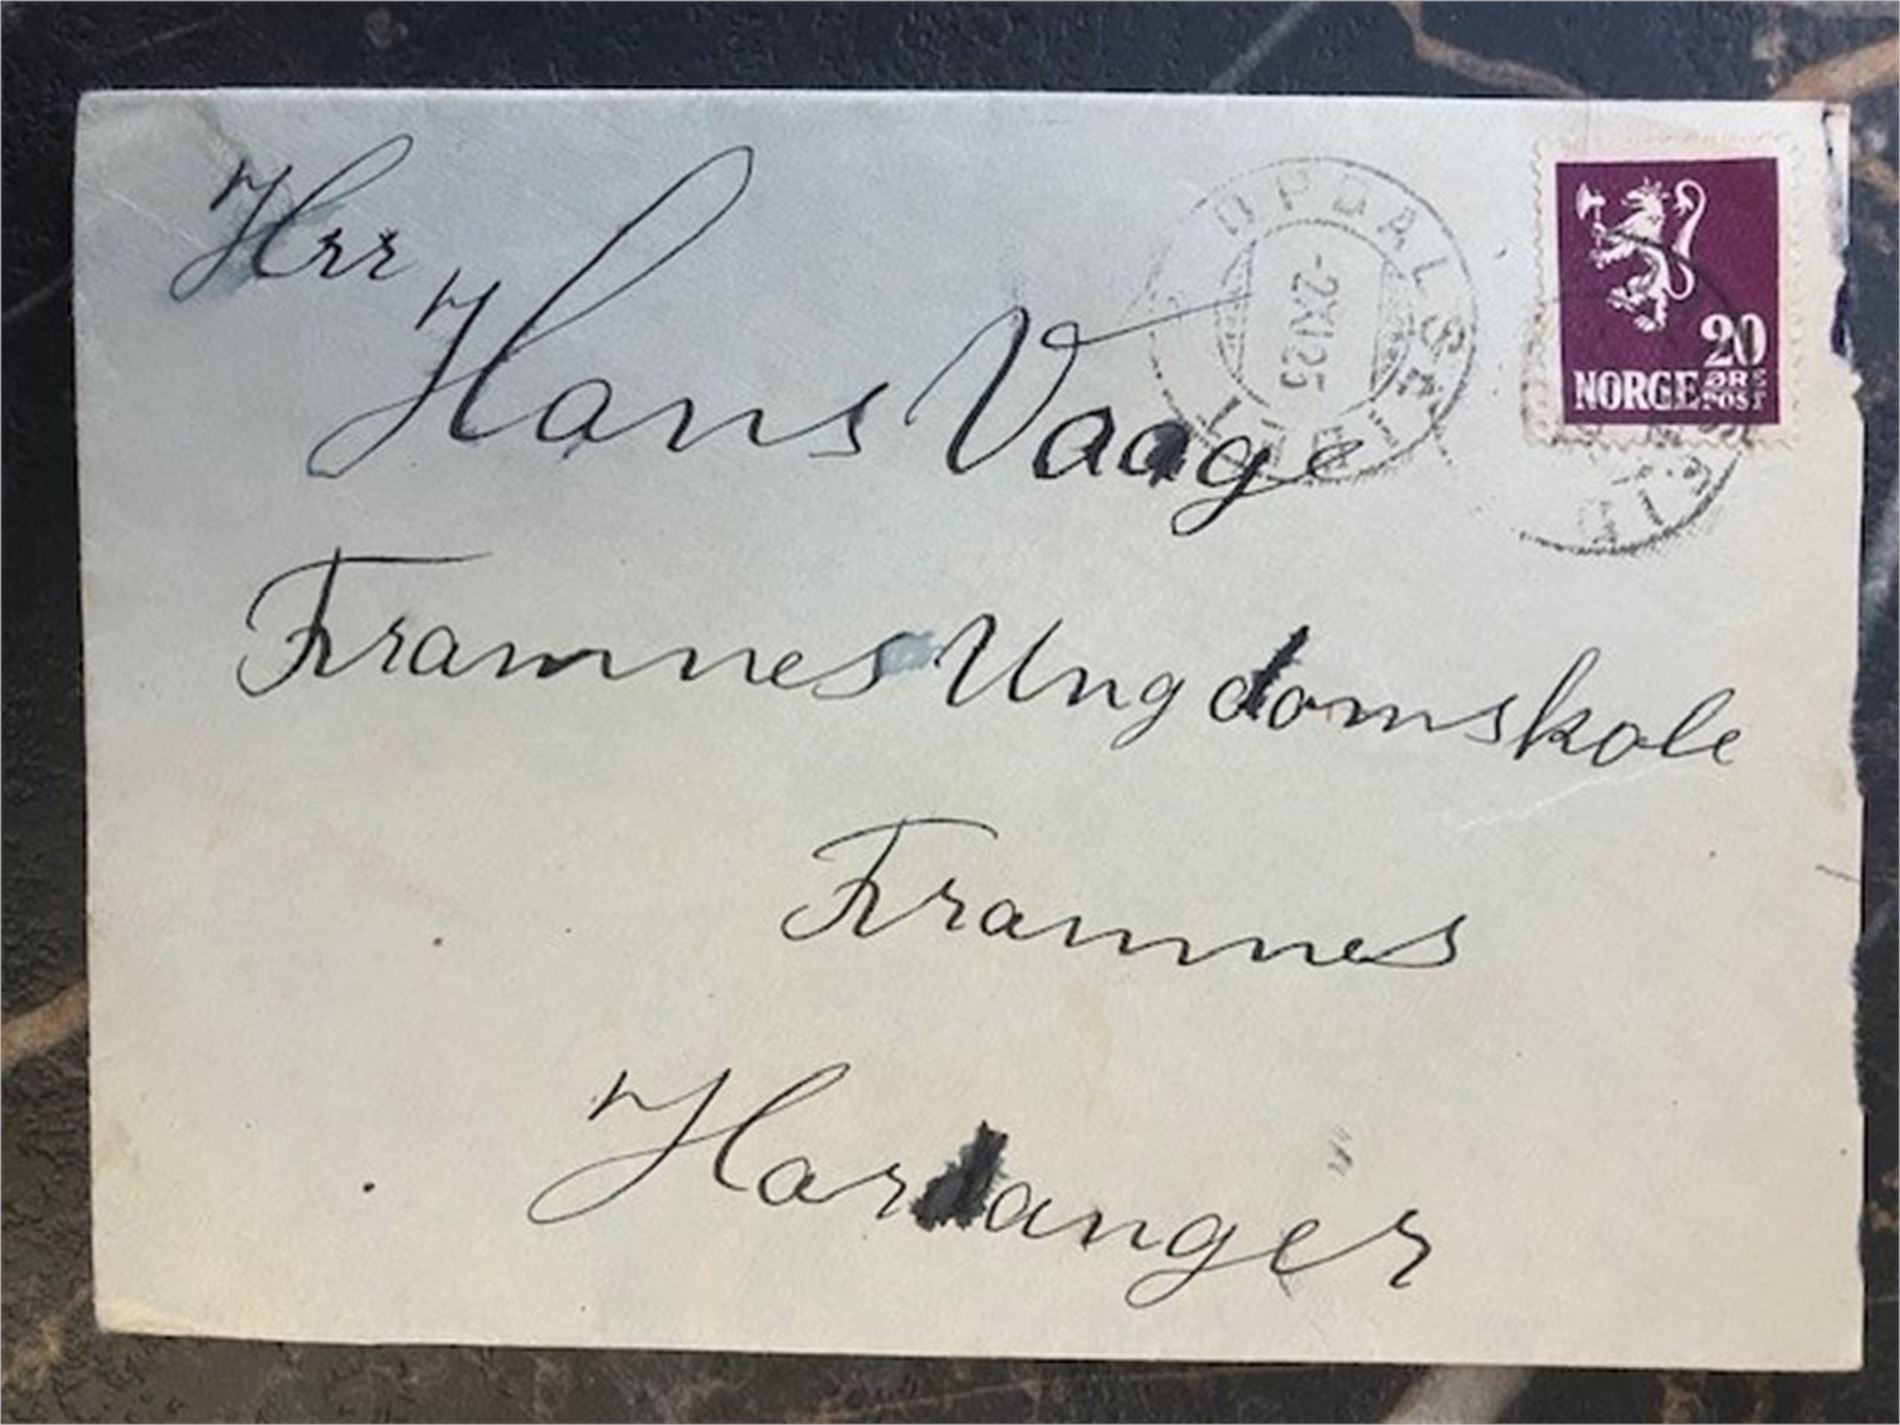 Herr
Hans Vaage
Framnes Ungdomskole
Framnes
Hardanger
-2 XII 25
20
NORGE ØRE
POST